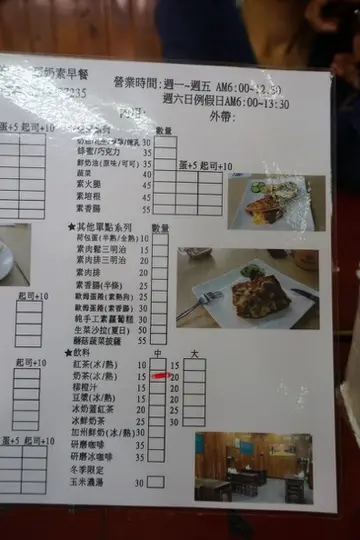 奶素早餐
營業時間:週一~週五 AM6:00~12:30
週六日例假日AM6:00~13:30
內用: 外帶:
蛋+5 起司+10
數量
30
蜂蜜/巧克力 35
鮮奶油(原味/可可) 35
蛋+5 起司+10
蔬菜 40
素火腿 45
素培根 45
素香腸 45
★其他單點系列 數量
荷包蛋(半熟/全熟) 10
素肉鬆三明治 15
素肉排三明治 20
素肉排 20
素香腸(半條) 25
歐姆蛋捲(素熱狗) 25
歐姆蛋捲(素香腸) 30
起司+10
純手工素蘿蔔糕 30
生菜沙拉(夏日) 50
蘑菇蔬菜披薩 55
★飲料 中 大
起司+10
紅茶(冰/熱) 10 15
奶茶(冰/熱) 15 20
柳橙汁 15 20
豆漿(冰/熱) 15 20
冰奶蓋紅茶 20 25
冰鮮奶茶 25 30
加州鮮奶(冰/熱) 30
研磨咖啡 35
蛋+5 起司+10
研磨冰咖啡 35
冬季限定
玉米濃湯 30